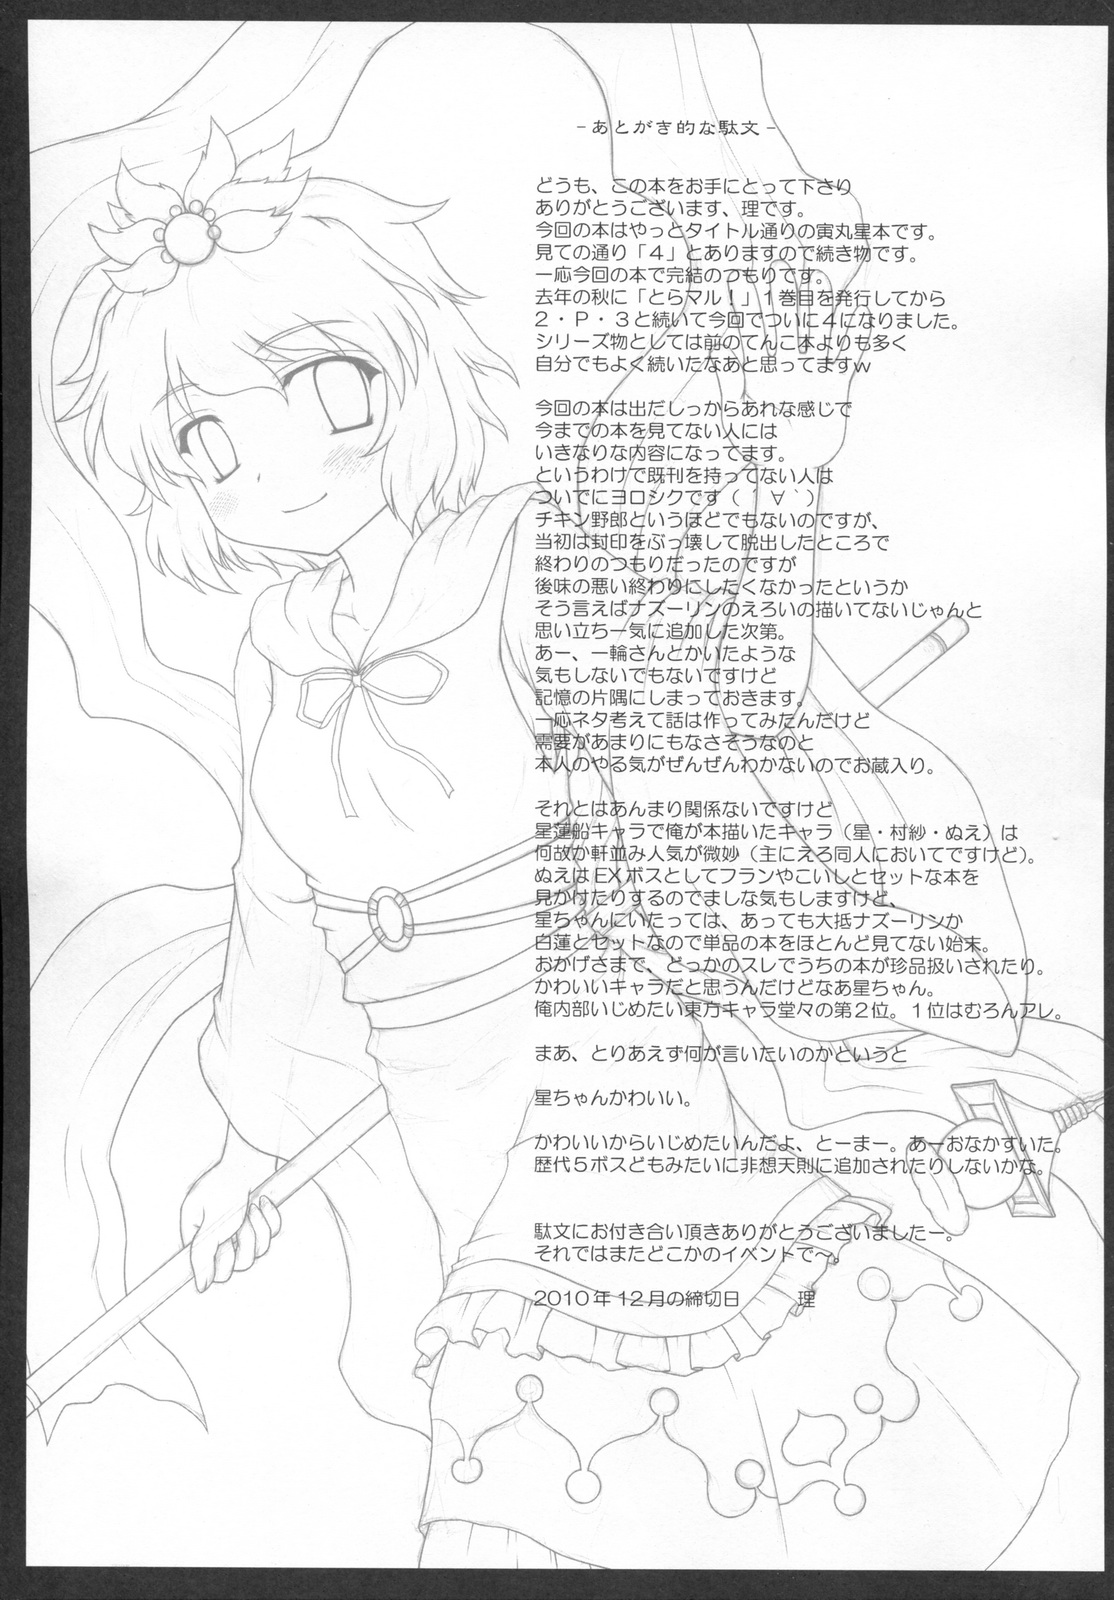 -あとがき的な駄文-
どうも、この本をお手にとって下さり
ありがとうございます、理です。
今回の本はやっとタイトル通りの寅丸星本です。
見ての通り「4」とありますので続き物です。
一応今回の本で完結のつもりです。
去年の秋に「とらマル!」1巻目を発行してから
2・P・3と続いて今回でついに4になりました。
シリーズ物としては前のてんこ本よりも多く
自分でもよく続いたなあと思ってますw
今回の本は出だしっからあれな感じで
今までの本を見てない人には
いきなりな内容になってます。
というわけで既刊を持ってない人は
ついでにヨロシクです(´∀`)
チキン野郎というほどでもないのですが、
当初は封印をぶっ壊して脱出したところで
終わりのつもりだったのですが
後味の悪い終わりにしたくなかったというか
そう言えばナズーリンのえろいの描いてないじゃんと
思い立ち一気に追加した次第。
あー、一輪さんとかいたような
気もしないでもないですけど
記憶の片隅にしまっておきます。
一応ネタ考えて話は作ってみたんだけど
需要があまりにもなさそうなのと
本人のやる気がぜんぜんわかないのでお蔵入り。
それとはあんまり関係ないですけど
星蓮船キャラで俺が本描いたキャラ(星・村紗・ぬえ)は
何故か軒並み人気が微妙(主にえろ同人においてですけど)。
ぬえはEXボスとしてフランやこいしとセットな本を
見かけたりするのでましな気もしますけど、
星ちゃんにいたっては、あっても大抵ナズーリンか
白蓮とセットなので単品の本をほとんど見てない始末。
おかげさまで、どっかのスレでうちの本が珍品扱いされたり。
かわいいキャラだと思うんだけどなあ星ちゃん。
俺内部いじめたい東方キャラ堂々の第2位。1位はむろんアレ。
まあ、とりあえず何が言いたいのかというと
星ちゃんかわいい。
かわいいからいじめたいんだよ、とーまー。あーおなかすいた。
歴代5ボスどもみたいに非想天則に追加されたりしないかな。
駄文にお付き合い頂きありがとうございましたー。
それではまたどこかのイベントで〜。
2010年12月の締切日 理